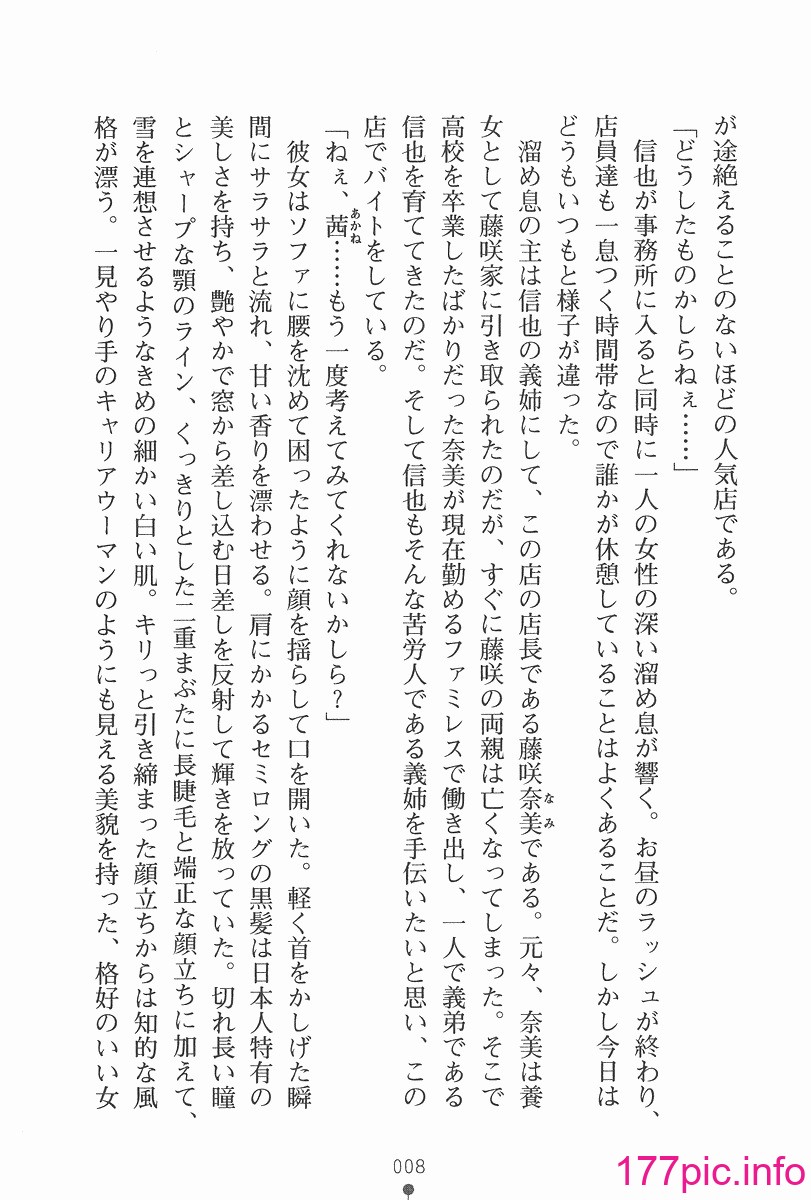 が途絶えることのないほどの人気店である。
「どうしたものかしらねぇ……」
信也が事務所に入ると同時に一人の女性の深い溜め息が響く。お昼のラッシュが終わり、
店員達も一息つく時間帯なので誰かが休憩していることはよくあることだ。しかし今日は
どうもいつもと様子が違った。
溜め息の主は信也の義姉にして、この店の店長である藤咲奈美である。元々、奈美は養
なみ
女として藤咲家に引き取られたのだが、すぐに藤咲の両親は亡くなってしまった。そこで
高校を卒業したばかりだった奈美が現在勤めるファミレスで働き出し、一人で義弟である
信也を育ててきたのだ。そして信也もそんな苦労人である義姉を手伝いたいと思い、この
店でバイトをしている。
「ねぇ、茜……もう一度考えてみてくれないかしら？」
あかね
彼女はソファに腰を沈めて困ったように顔を揺らして口を開いた。軽く首をかしげた瞬
間にサラサラと流れ、甘い香りを漂わせる。肩にかかるセミロングの黒髪は日本人特有の
美しさを持ち、艶やかで窓から差し込む日差しを反射して輝きを放っていた。切れ長い瞳
とシャープな顎のライン、くっきりとした二重まぶたに長睫毛と端正な顔立ちに加えて、
雪を連想させるようなきめの細かい白い肌。キリっと引き締まった顔立ちからは知的な風
格が漂う。一見やり手のキャリアウーマンのようにも見える美貌を持った、格好のいい女
008
177pic.info